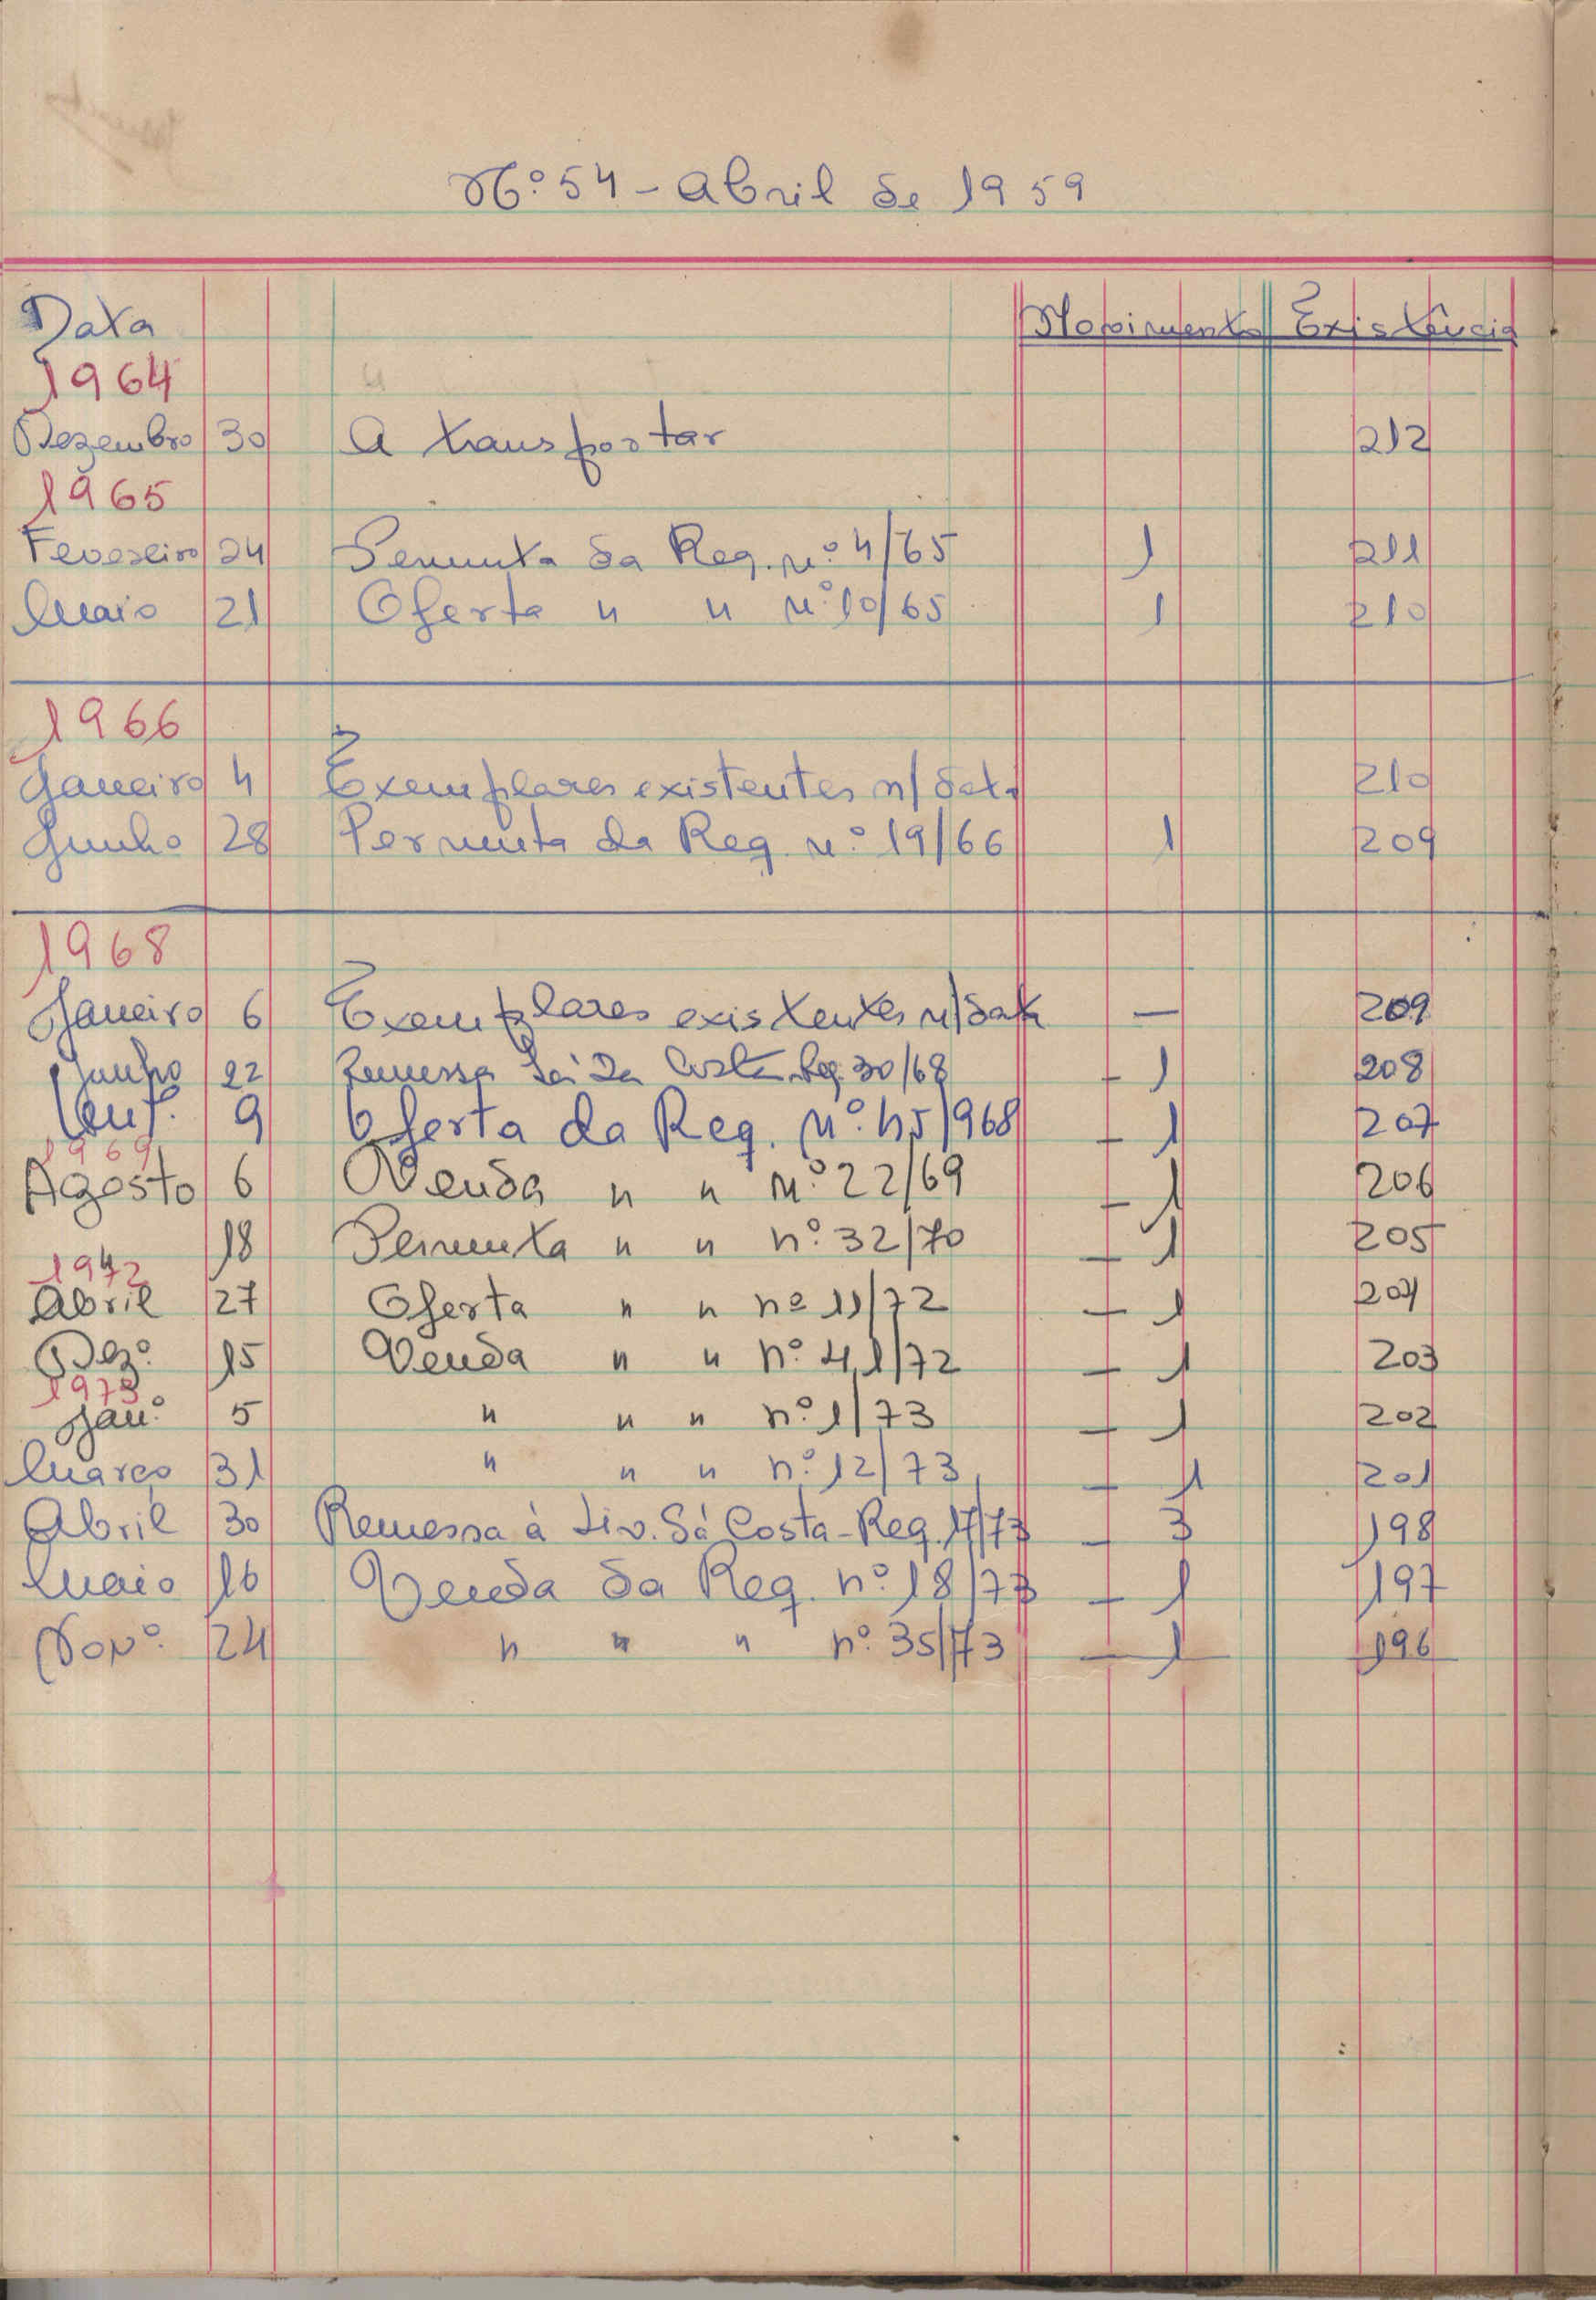 Nº 54 - Abril de 1959
Data Movimento Existência
1964
Dezembro 30 A transportar 212
1965
Fevereiro 24 Permuta da Req. nº 4/65 1 211
Maio 21 Oferta " " nº 10/65 1 210
1966
Janeiro 4 Exemplares existentes n/data 210
Junho 28 Permuta da Req. nº 19/66 1 209
1968
Janeiro 6 Exemplares existentes n/data — 209
Junho 22 Remessa Sá da Costa Req. 30/68 - 1 208
9 Oferta da Req. Nº 45/968 - 1 207
1969
Agosto 6 Venda " " nº 22/69 - 1 206
18 Permuta " " nº 32/70 - 1 205
1972
Abril 27 Oferta " " nº 11/72 - 1 204
Dezº 15 Venda " " nº 41/72 - 1 203
1973
Janº 5 " " " nº 1/73 - 1 202
Março 31 " " " nº 12/73 - 1 201
Abril 30 Remessa à Liv. Sá Costa - Req. 17/73 - 3 198
Maio 16 Venda da Req. nº 18/73 - 1 197
Novº 24 " " " nº 35/73 - 1 196